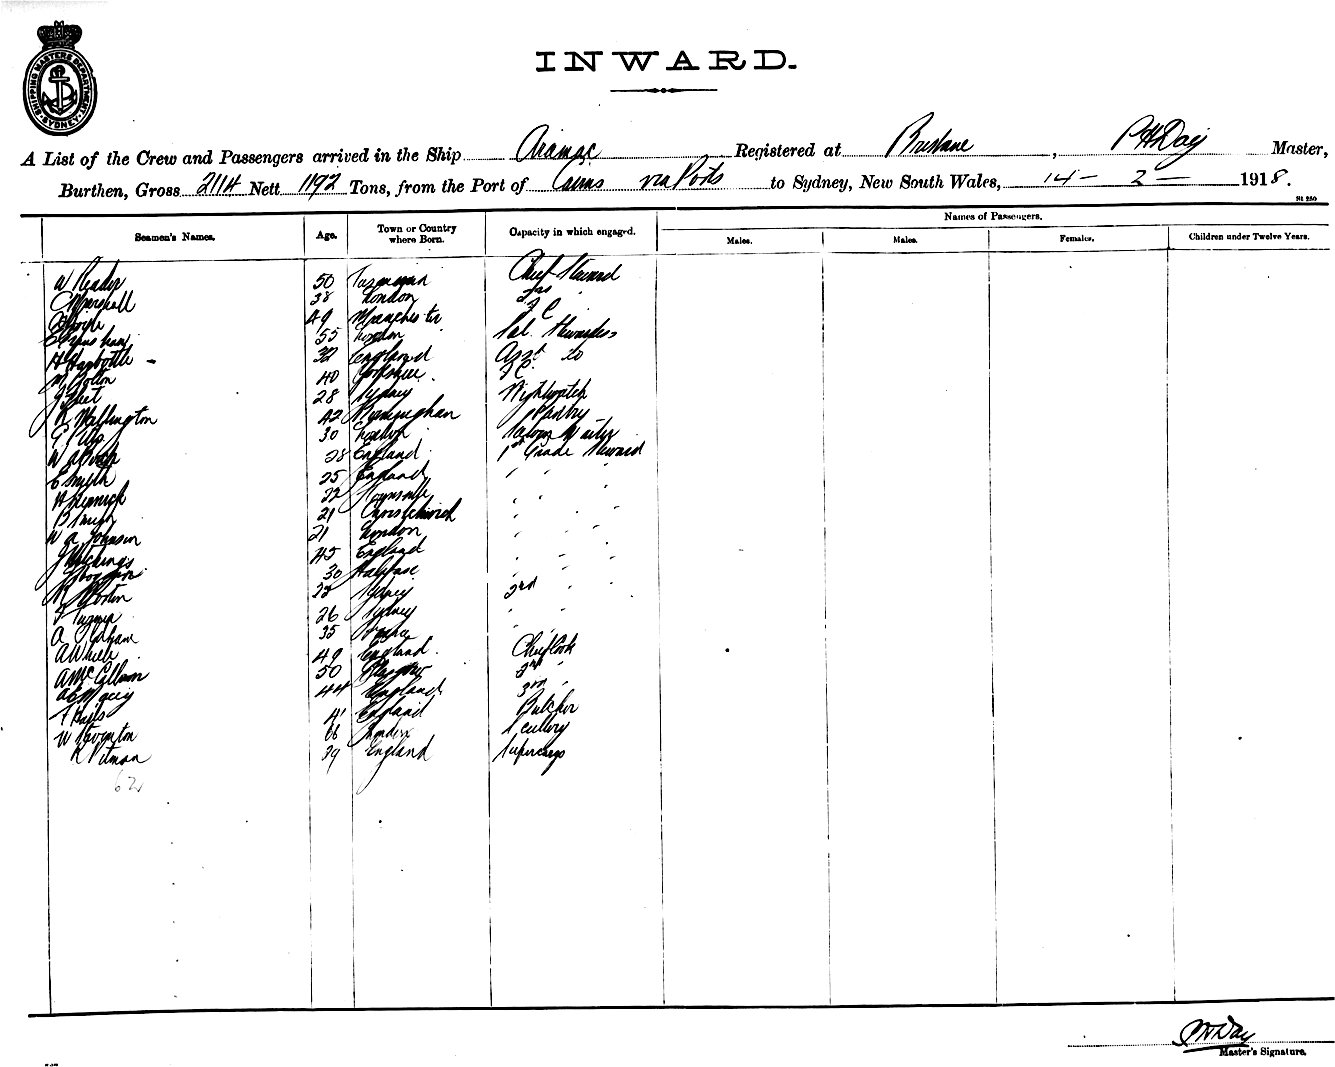 SHIPPING MASTERS DEPARTMENT SYDNEY
INWARD.
A List of the Crew and Passengers arrived in the Ship Aramac Registered at Brisbane, P H Day Master,
Burthen, Gross 2114 Nett 1192 Tons, from the Port of Cairns via Ports to Sydney, New South Wales, 14 - 2 - 1918.
St 250
Seamen's Names. Age. Town or Country where Born. Capacity in which engaged. Names of Passengers.
Males. Males. Females. Children under Twelve Years.
W Reader 50 Tasmania Chief Steward
Marshall 38 London 2nd
49 Manchester F C
55 London Sal. Stewardess
H Harbottle - 32 England Asst do
40 Yorkshire F C
J Fleet 28 Sydney Nightwatch
R Wellington 42 Birmingham Pantry
30 London Saloon Waiter
W A Birch 28 England 1st Grade Steward
E Smyth 25 England " " "
H 22 Townsville " " "
B 21 Christchurch " " "
W A Johnson 21 London " " "
J Hutchings 45 England " " "
30 Halifax " " "
R Morton 22 Sydney 2nd "
26 Sydney " "
A Graham 35 " "
A White 49 England Chief Cook
A McCallum 50 Glasgow 2nd "
44 England 3rd "
41 England Butcher
W Thornton 66 London Scullery
R Pitman 39 England Supercargo
62
P H Day
Master's Signature.